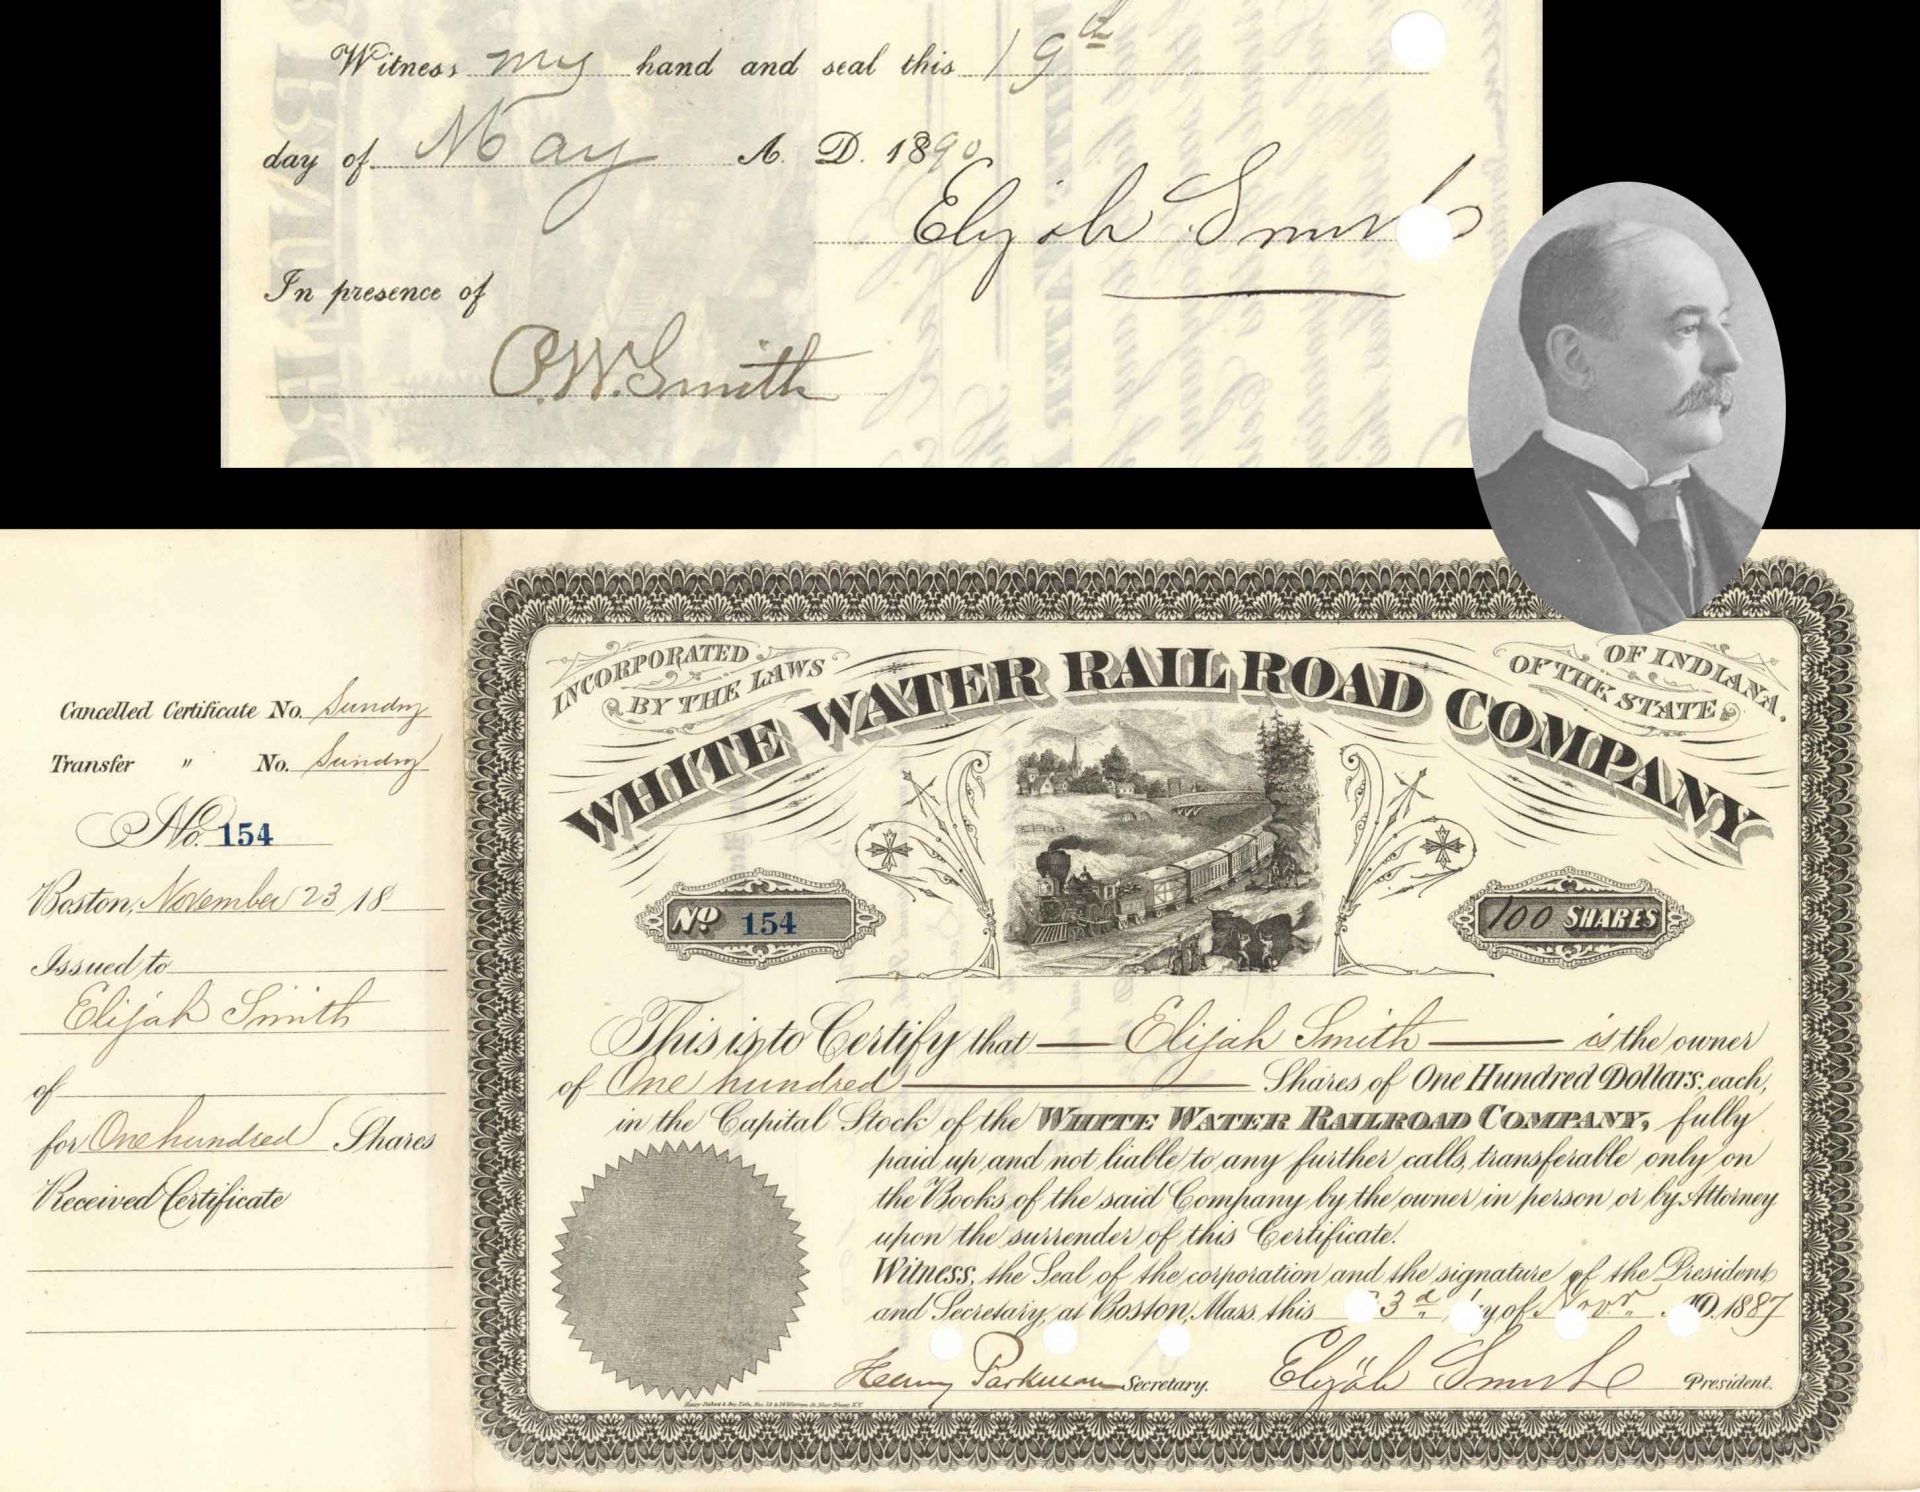 Witness my hand and seal this 19th
day of May A. D. 1890
Elijah Smith
In presence of
P.W. Smith
Cancelled Certificate No. Sundry
Transfer " No. Sundry
No. 154
Boston, November 23 18
Issued to
Elijah Smith
of
for One hundred Shares
Received Certificate
INCORPORATED BY THE LAWS
OF THE STATE OF INDIANA.
WHITE WATER RAILROAD COMPANY
No 154
100 SHARES
This is to Certify that Elijah Smith is the owner
of One hundred Shares of One Hundred Dollars, each,
in the Capital Stock of the WHITE WATER RAILROAD COMPANY, fully
paid up and not liable to any further calls, transferable only on
the Books of the said Company by the owner in person or by Attorney
upon the surrender of this Certificate.
Witness, the Seal of the corporation and the signature of the President
and Secretary, at Boston, Mass. this 3d day of Novr. A.D. 1887
Henry Parkman Secretary.
Elijah Smith President.